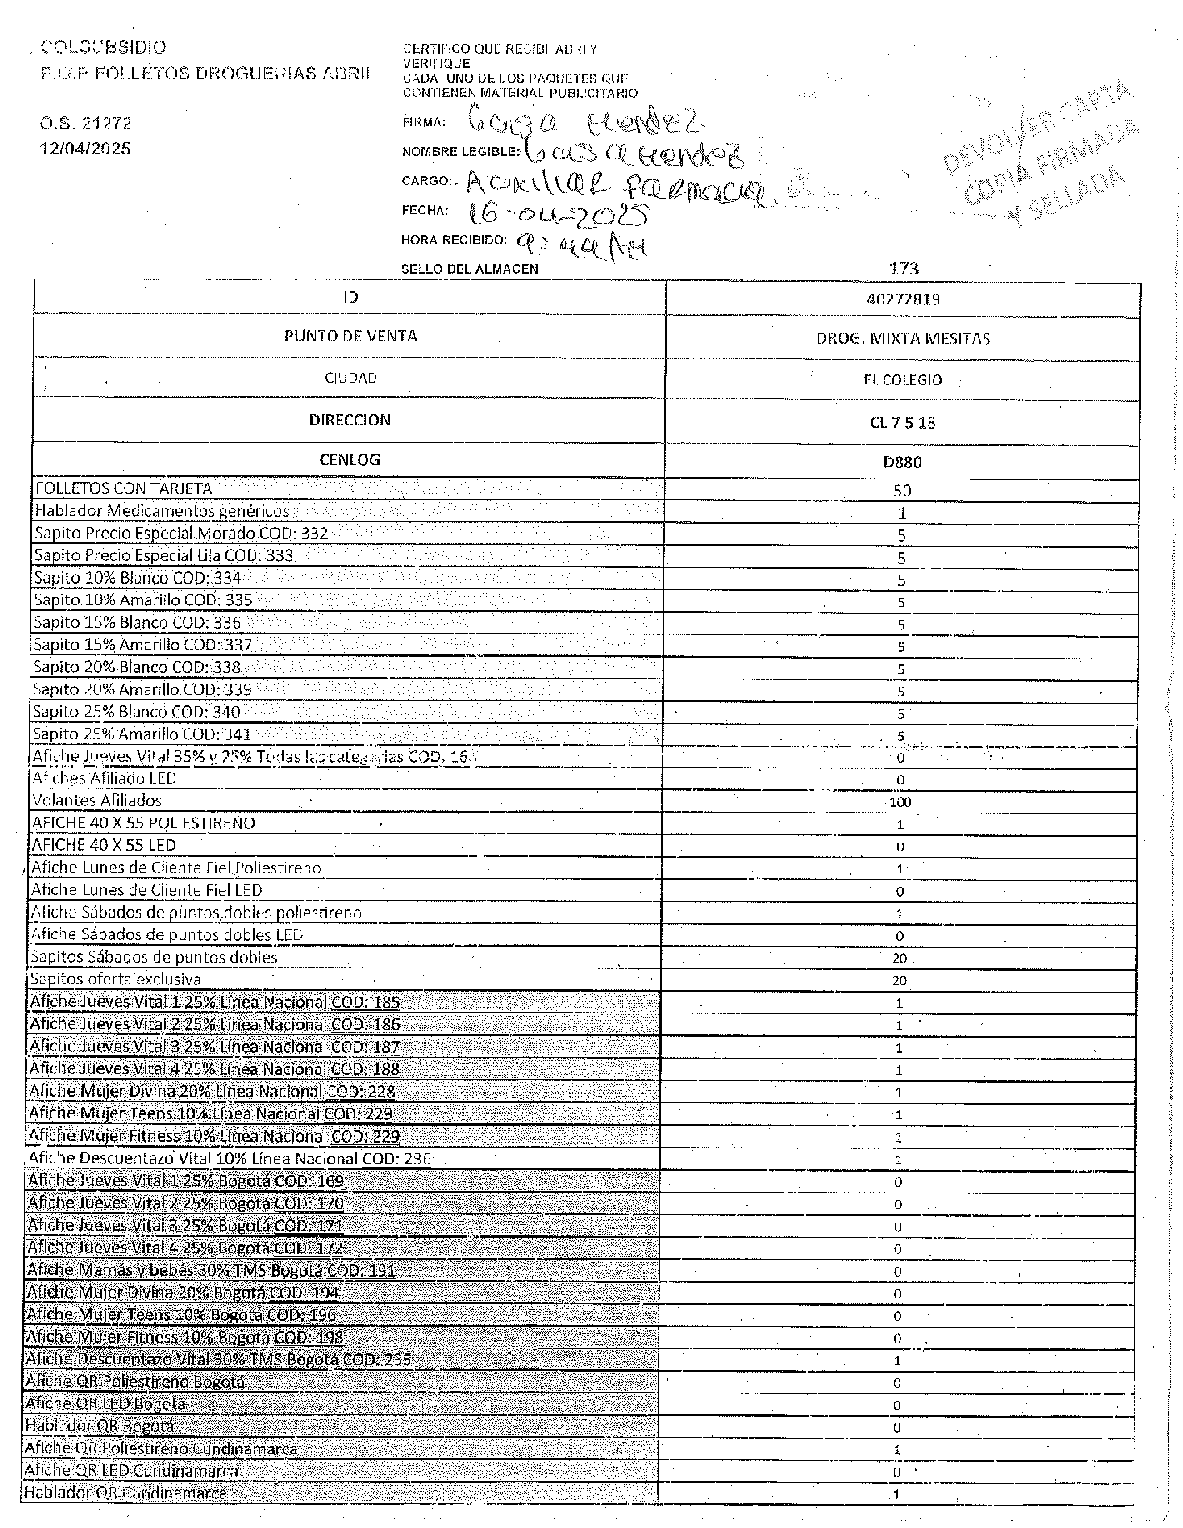 COLSUBSIDIO
P.O.P FOLLETOS DROGUERIAS ABRIL
O.S. 21272
12/04/2025
CERTIFICO QUE RECIBI ABRI Y
VERIFIQUE
CADA UNO DE LOS PAQUETES QUE
CONTIENEN MATERIAL PUBLICITARIO
FIRMA: Mendez
NOMBRE LEGIBLE: Mendez
CARGO: Auxiliar Farmacia
FECHA: 16-04-2025
HORA RECIBIDO: AM
SELLO DEL ALMACEN
DEVOLVER CARTA
COPIA FIRMADA
Y SELLADA
173
ID 40272819
PUNTO DE VENTA DROG. MIXTA MESITAS
CIUDAD EL COLEGIO
DIRECCION CL 7 5 13
CENLOG D880
FOLLETOS CON TARJETA 50
Hablador Medicamentos genéricos 1
Sapito Precio Especial Morado COD: 332 5
Sapito Precio Especial Lila COD: 333 5
Sapito 10% Blanco COD: 334 5
Sapito 10% Amarillo COD: 335 5
Sapito 15% Blanco COD: 336 5
Sapito 15% Amarillo COD: 337 5
Sapito 20% Blanco COD: 338 5
Sapito 20% Amarillo COD: 339 5
Sapito 25% Blanco COD: 340 5
Sapito 25% Amarillo COD: 341 5
Afiche Jueves Vital 35% y 25% Todas las categorias COD. 0
Afiches Afiliado LED 0
Volantes Afiliados 100
AFICHE 40 X 55 POLIESTIRENO 1
AFICHE 40 X 55 LED 0
Afiche Lunes de Cliente Fiel Poliestireno 1
Afiche Lunes de Cliente Fiel LED 0
Afiche Sábados de puntos dobles poliestireno 1
Afiche Sábados de puntos dobles LED 0
Sapitos Sábados de puntos dobles 20
Sapitos oferta exclusiva 20
Afiche Jueves Vital 1 25% Linea Nacional COD: 185 1
Afiche Jueves Vital 2 25% Linea Nacional COD: 186 1
Afiche Jueves Vital 3 25% Linea Nacional COD: 187 1
Afiche Jueves Vital 4 25% Linea Nacional COD: 188 1
Afiche Mujer Divina 20% Linea Nacional COD: 228 1
Afiche Mujer Teens 10% Linea Nacional COD: 229 1
Afiche Mujer Fitness 10% Linea Nacional COD: 229 1
Afiche Descuentazo Vital 10% Linea Nacional COD: 236 1
Afiche Jueves Vital 1 25% Bogotá COD: 169 0
Afiche Jueves Vital 2 25% Bogotá COD: 170 0
Afiche Jueves Vital 3 25% Bogotá COD: 171 0
Afiche Jueves Vital 4 25% Bogotá COD: 172 0
Afiche Mamás y bebés 30% TMS Bogotá COD: 191 0
Afiche Mujer Divina 20% Bogotá COD: 194 0
Afiche Mujer Teens 10% Bogotá COD: 196 0
Afiche Mujer Fitness 10% Bogotá COD: 198 0
Afiche Descuentazo Vital 30% TMS Bogotá COD: 235 1
Afiche QR Poliestireno Bogotá 0
Afiche QR LED Bogotá 0
Hablador QR Bogotá 0
Afiche QR Poliestireno Cundinamarca 1
Afiche QR LED Cundinamarca 0
Hablador QR Cundinamarca 1